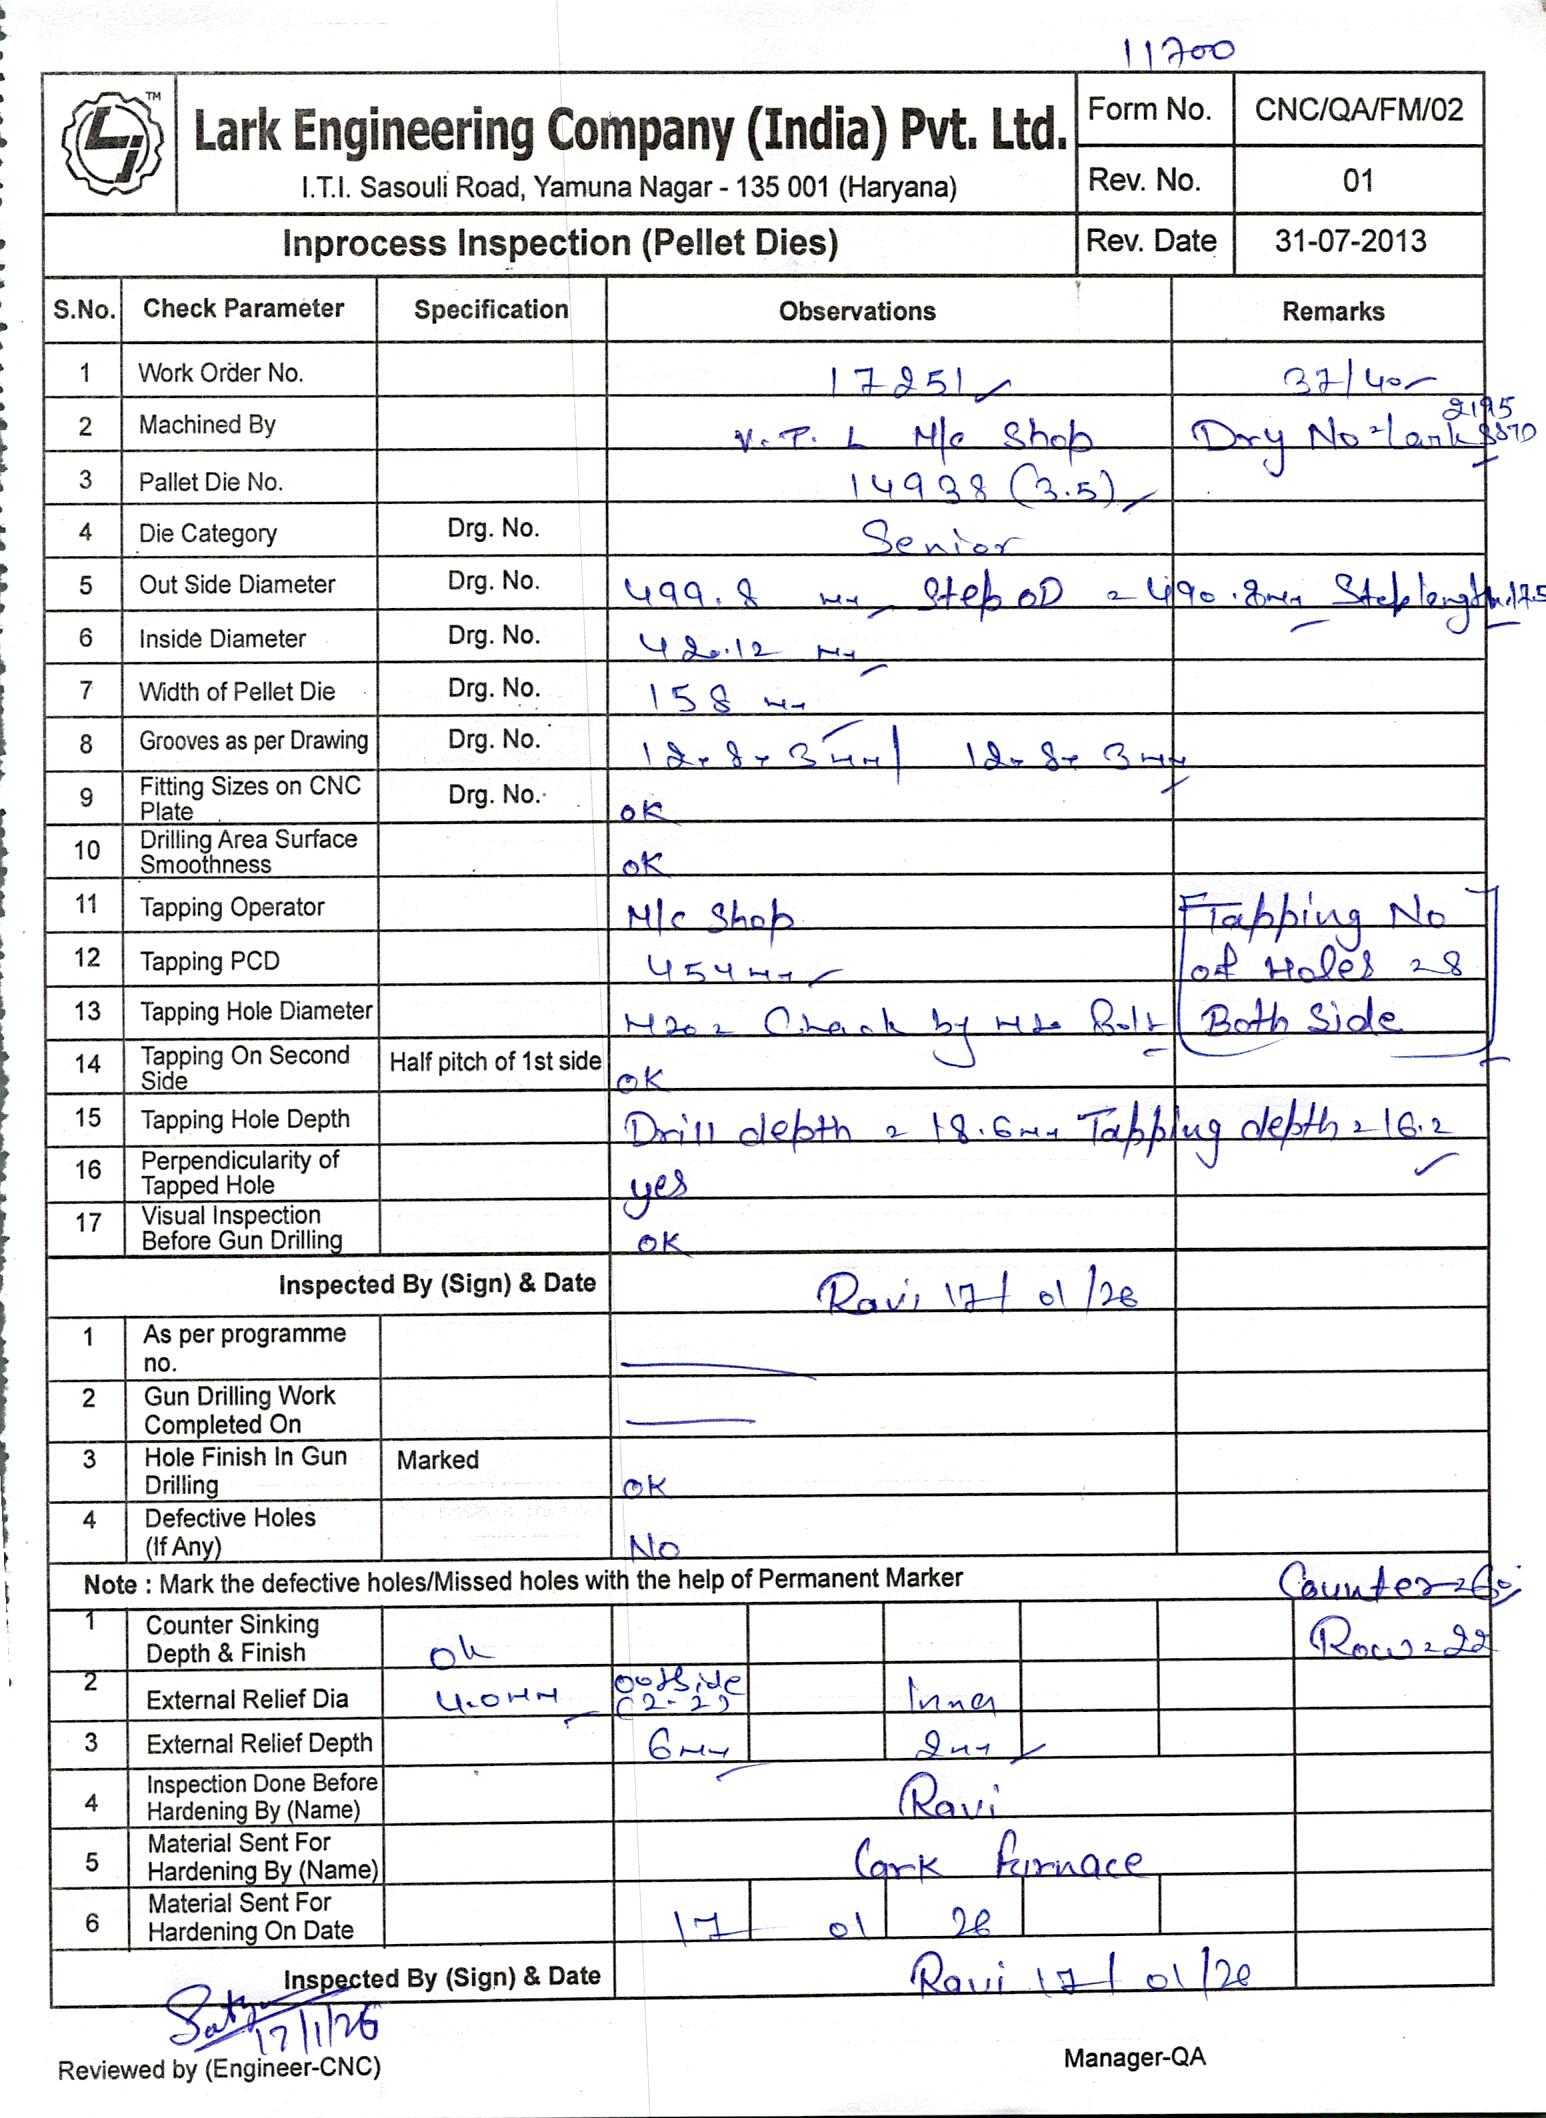 11700
TM
Lark Engineering Company (India) Pvt. Ltd.
I.T.I. Sasouli Road, Yamuna Nagar - 135 001 (Haryana)
Form No. CNC/QA/FM/02
Rev. No. 01
Inprocess Inspection (Pellet Dies) Rev. Date 31-07-2013
S.No. Check Parameter Specification Observations Remarks
1 Work Order No. 17251 37/40
2 Machined By V.T.L M/c Shop Dry No = lark 2195
3 Pallet Die No. 14938 (3.5)
4 Die Category Drg. No. Senior
5 Out Side Diameter Drg. No. 499.8 mm Step OD = 490.8mm Step length 17.5
6 Inside Diameter Drg. No. 420.12 mm
7 Width of Pellet Die Drg. No. 158 mm
8 Grooves as per Drawing Drg. No. 12x8x3mm/ 12x8x3mm
9 Fitting Sizes on CNC Plate Drg. No. OK
10 Drilling Area Surface Smoothness OK
11 Tapping Operator M/c Shop Tapping No
12 Tapping PCD 454mm of Holes = 8
13 Tapping Hole Diameter M20 = Check by M20 Bolt Both Side
14 Tapping On Second Side Half pitch of 1st side OK
15 Tapping Hole Depth Drill depth = 18.6mm Tapping depth = 16.2
16 Perpendicularity of Tapped Hole yes
17 Visual Inspection Before Gun Drilling OK
Inspected By (Sign) & Date Ravi 17/01/26
1 As per programme no.
2 Gun Drilling Work Completed On
3 Hole Finish In Gun Drilling Marked OK
4 Defective Holes (If Any) No
Note : Mark the defective holes/Missed holes with the help of Permanent Marker Counter = 60
1 Counter Sinking Depth & Finish Ok Row = 22
2 External Relief Dia 4.0mm outside (2-2) Inner
3 External Relief Depth 6mm 2mm
4 Inspection Done Before Hardening By (Name) Ravi
5 Material Sent For Hardening By (Name) Lark furnace
6 Material Sent For Hardening On Date 17 01 26
Inspected By (Sign) & Date Ravi 17/01/26
17/1/26
Reviewed by (Engineer-CNC) Manager-QA